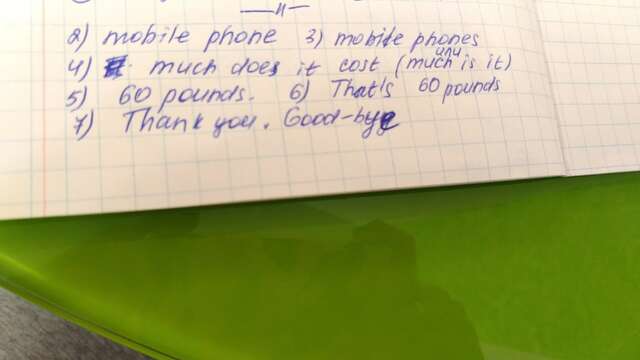 —〃—
2) mobile phone 3) mobile phones
4) much does it cost (much или is it)
5) 60 pounds. 6) That's 60 pounds
7) Thank you. Good-bye